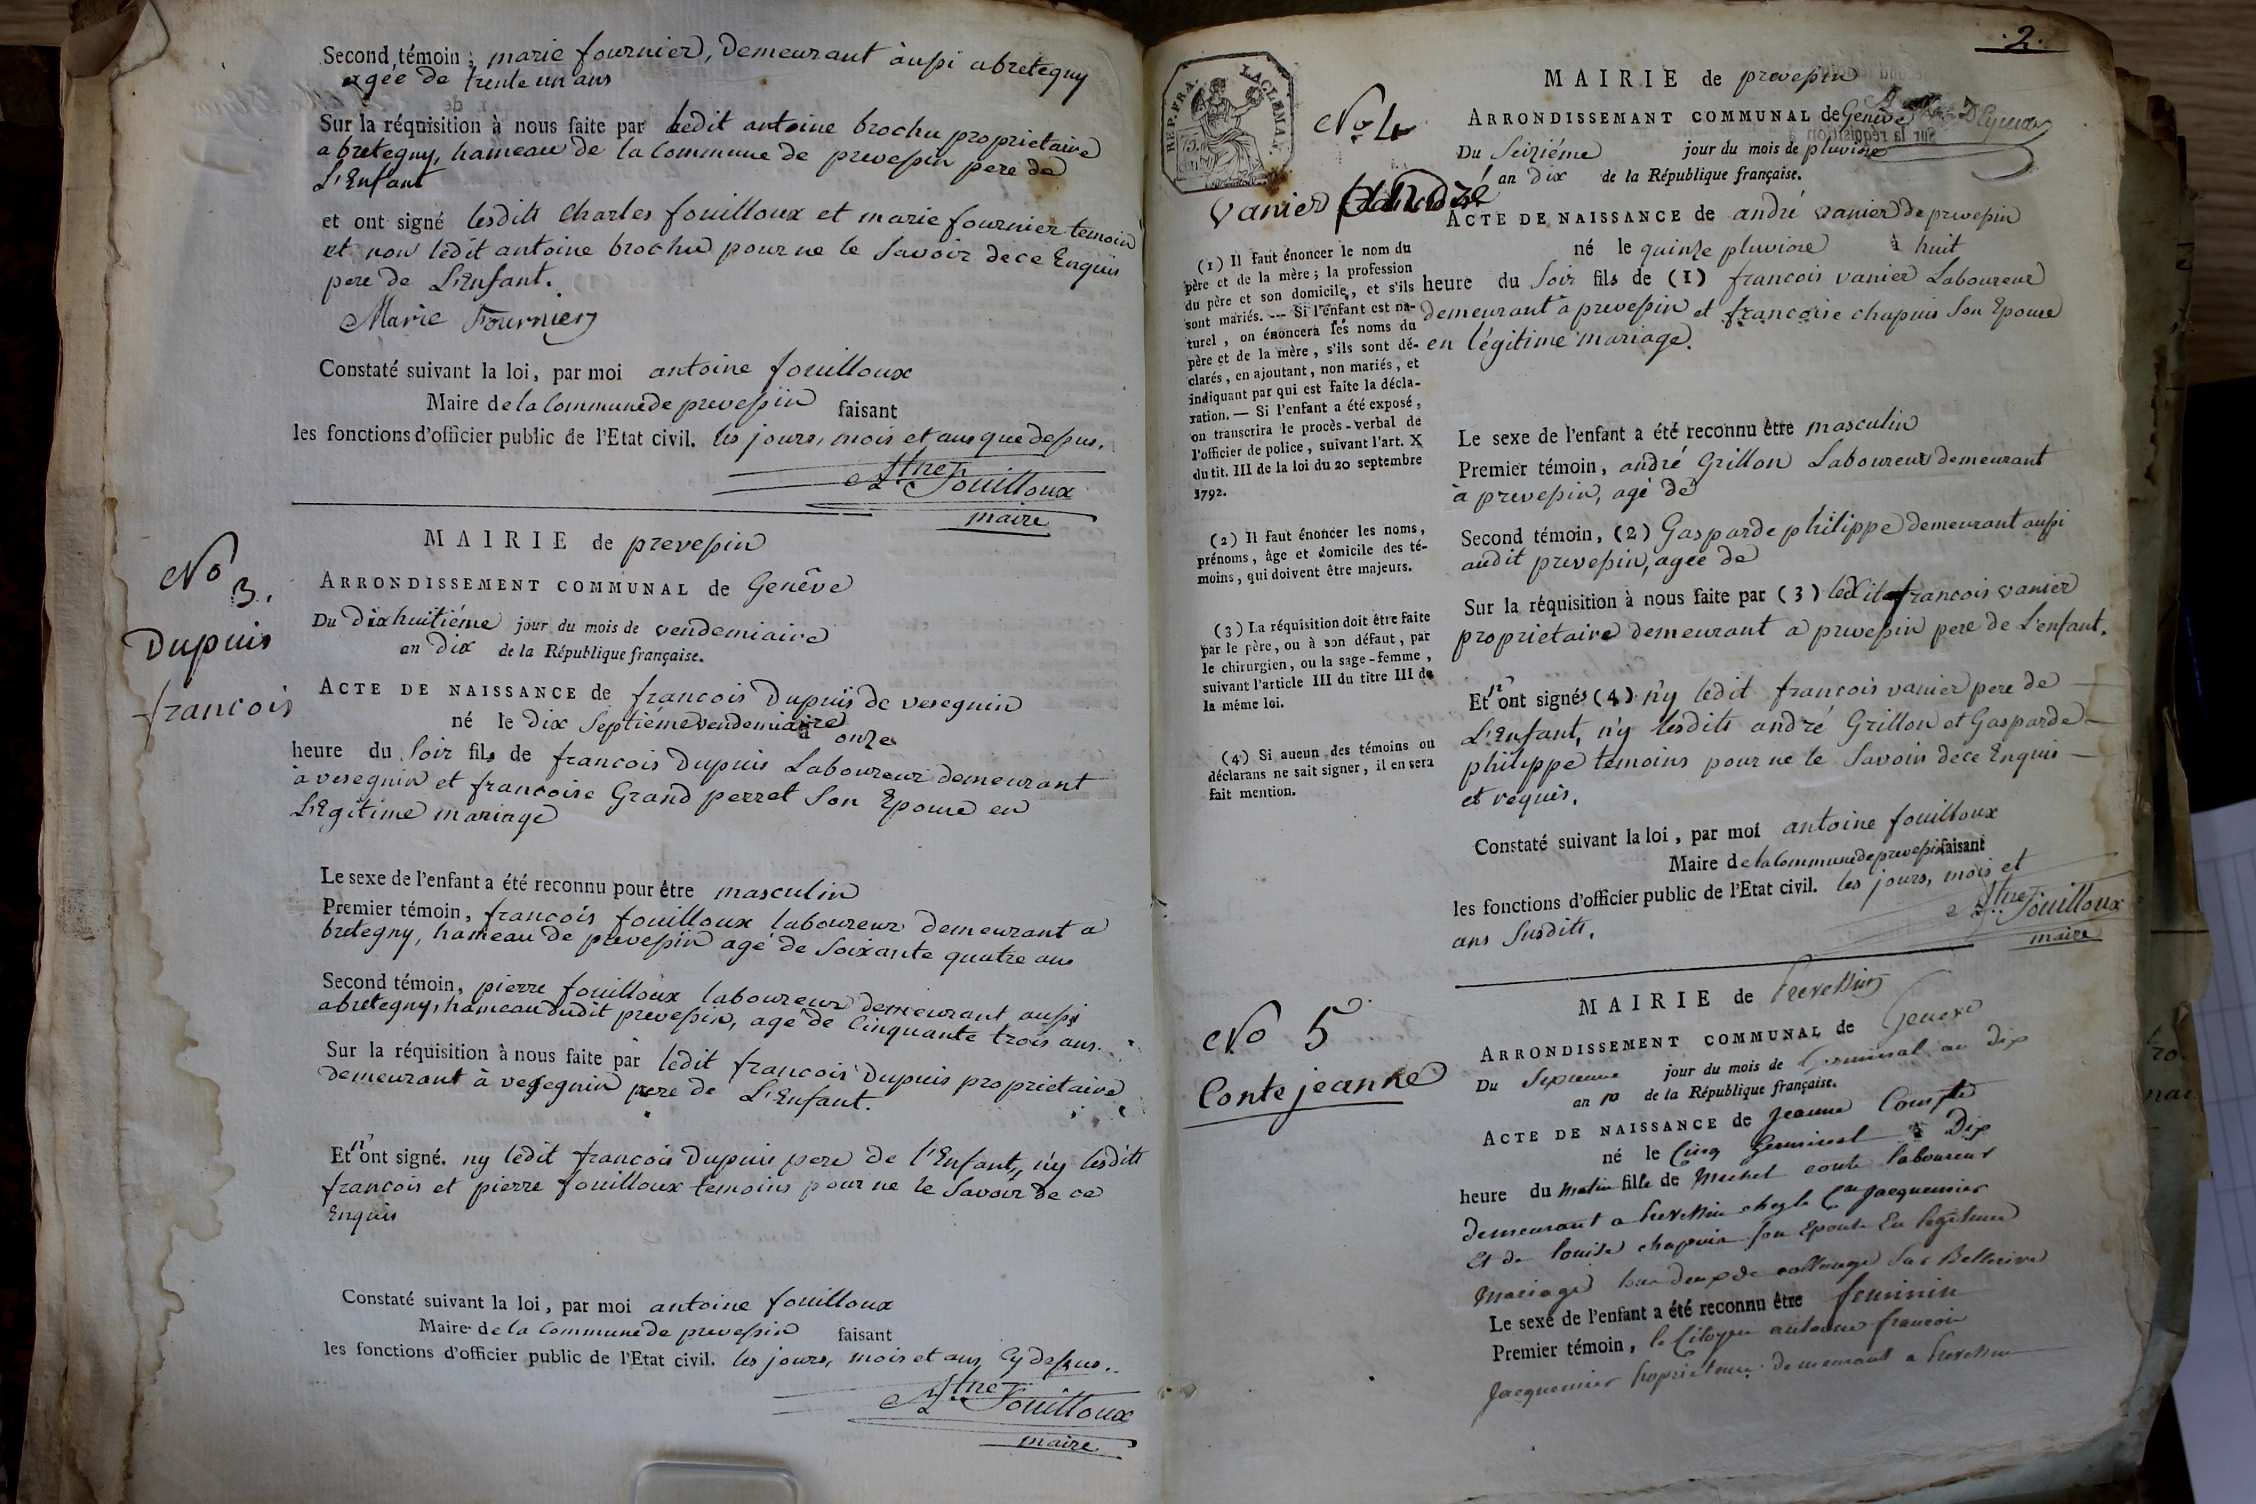 Second témoin ; marie fournier, demeurant àussi a bretegny
agée de trente un ans
Sur la réquisition à nous faite par ledit antoine brochu proprietaire
a bretegny, hameau de la Commune de prevessin pere de
L'Enfant
et ont signé lesdits Charles fouilloux et marie fournier temoin
et non ledit antoine brochu pour ne le Savoir de ce Enquis
pere de L'Enfant.
Marie Fournier
Constaté suivant la loi, par moi antoine fouilloux
Maire de la Commune de prevessin faisant
les fonctions d'officier public de l'Etat civil. les jours, mois et ans que dessus.
Atne Fouilloux
maire
No
3.
Dupuis
francois
MAIRIE de prevessin
ARRONDISSEMENT COMMUNAL de Genêve
Du Dixhuitiéme jour du mois de vendemiaire
an Dix de la République française.
ACTE DE NAISSANCE de francois Dupuis de vesegnin
né le Dix Septiéme vendemiaire à onze
heure du Soir fils de francois Dupuis Laboureur demeurant
à vesegnin et francoise Grand perret Son Epouse en
LEgitime mariage
Le sexe de l'enfant a été reconnu pour être masculin
Premier témoin, francois fouilloux laboureur demeurant a
bretegny, hameau de prevessin agé de Soixante quatre ans
Second témoin, pierre fouilloux laboureur demeurant aussi
a bretegny, hameau dudit prevessin, agé de Cinquante trois ans.
Sur la réquisition à nous faite par ledit francois Dupuis proprietaire
demeurant à vesegnin pere de L'Enfant.
Et n'ont signé. ny ledit francois Dupuis pere de l'Enfant, n'y lesdits
francois et pierre fouilloux temoins pour ne le Savoir de ce
Enquis
Constaté suivant la loi, par moi antoine fouilloux
Maire de la Commune de prevessin faisant
les fonctions d'officier public de l'Etat civil. les jours, mois et ans Cy dessus.
Atne Fouilloux
maire
.2.
REP. FRA.
No 4
vanier andré
MAIRIE de prevessin
ARRONDISSEMANT COMMUNAL de Genêve
Du Seiziéme jour du mois de pluviose
an Dix de la République française.
ACTE DE NAISSANCE de andré vanier de prevessin
né le quinze pluviose à huit
heure du Soir fils de (1) francois vanier Laboureur
demeurant à prevessin et francoise chapuis Son Epouse
en légitime mariage.
(1) Il faut énoncer le nom du
père et de la mère ; la profession
du père et son domicile, et s'ils
sont mariés. --- Si l'enfant est na-
turel, on énoncera les noms du
père et de la mère, s'ils sont dé-
clarés, en ajoutant, non mariés, et
indiquant par qui est faite la décla-
ration. — Si l'enfant a été exposé,
on transcrira le procès-verbal de
l'officier de police, suivant l'art. X
du tit. III de la loi du 20 septembre
1792.
Le sexe de l'enfant a été reconnu être masculin
Premier témoin, andré Grillon Laboureur demeurant
à prevessin, agé de
(2) Il faut énoncer les noms,
prénoms, âge et domicile des té-
moins, qui doivent être majeurs.
Second témoin, (2) Gasparde philippe demeurant aussi
audit prevessin, agée de
(3) La réquisition doit être faite
par le père, ou à son défaut, par
le chirurgien, ou la sage-femme,
suivant l'article III du titre III de
la même loi.
Sur la réquisition à nous faite par (3) ledit francois vanier
proprietaire demeurant a prevessin pere de L'enfant.
(4) Si aucun des témoins ou
déclarans ne sait signer, il en sera
fait mention.
Et n'ont signés (4) n'y ledit francois vanier pere de
L'Enfant, n'y lesdits andré Grillon et Gasparde
philippe temoins pour ne le Savoir de ce Enquis
et requis.
Constaté suivant la loi, par moi antoine fouilloux
Maire de la Commune de prevessin faisant
les fonctions d'officier public de l'Etat civil. les jours, mois et
ans Susdits.
Atne Fouilloux
maire
No 5
Conte jeanne
MAIRIE de Prevessin
ARRONDISSEMENT COMMUNAL de Geneve
Du Septieme jour du mois de Germinal an dix
an 10 de la République française.
ACTE DE NAISSANCE de Jeanne Compte
né le Cinq Germinal à Dix
heure du matin fille de Michel conte laboureur
demeurant a Prevessin chez le Cen Jacquemier
Et de louise chapuis son Epouse En legitime
Mariage
Le sexe de l'enfant a été reconnu être feminin
Premier témoin, le Citoyen antoine francois
Jacquemier proprietaire demeurant a Prevessin